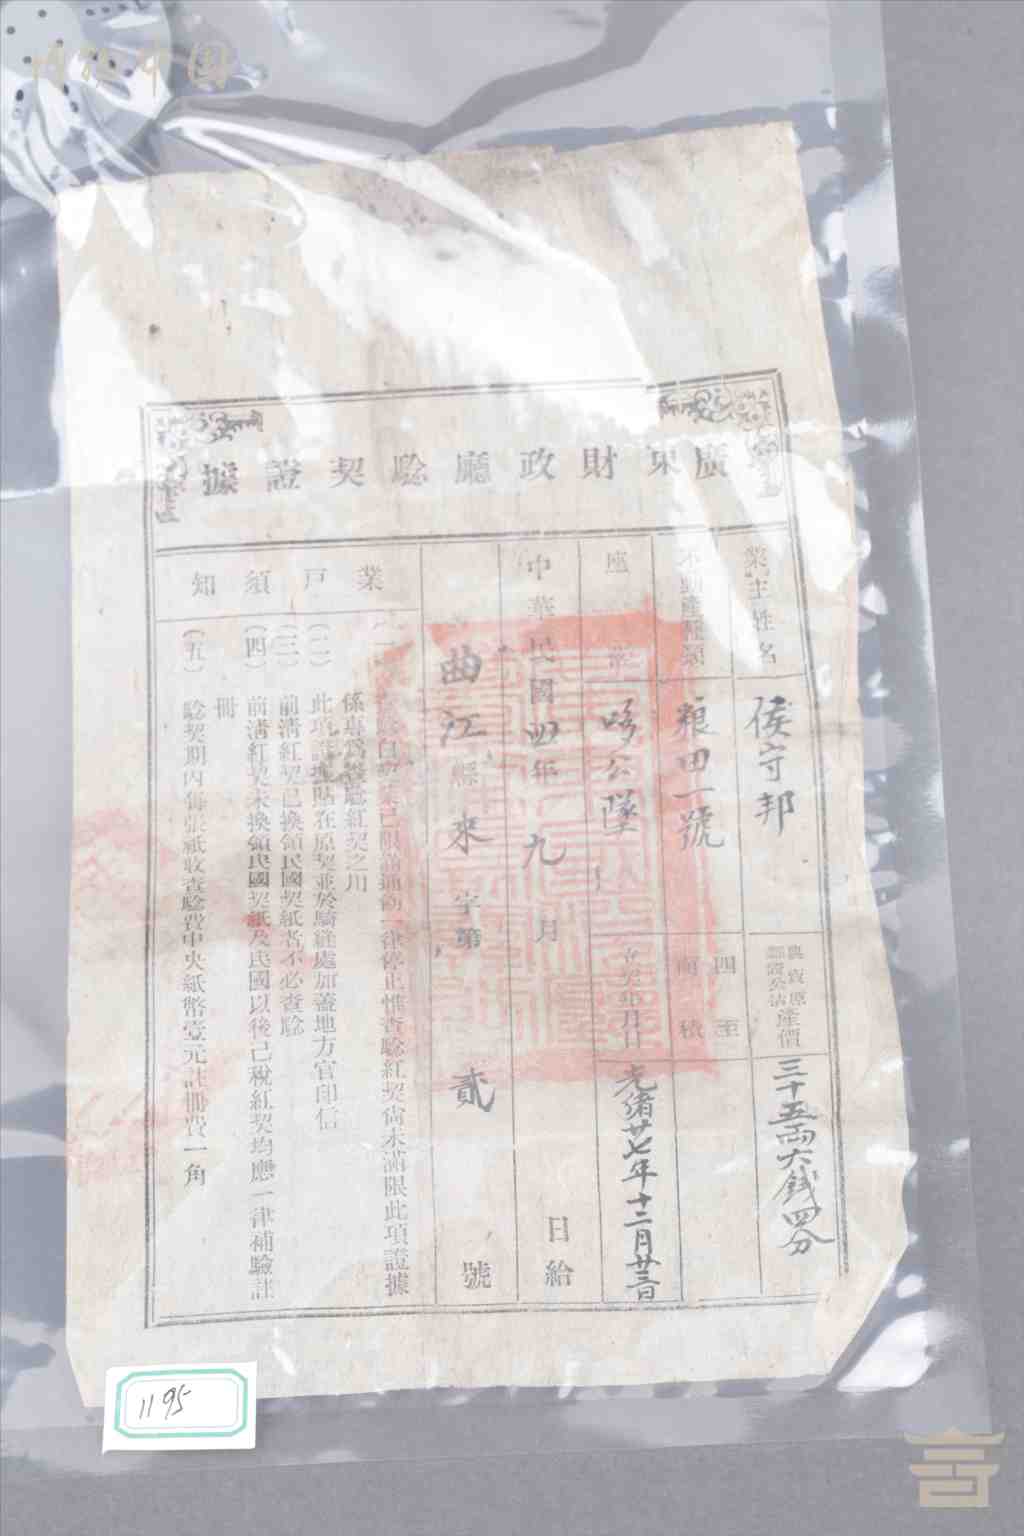 廣東財政廳驗契證據
業主姓名
侯守邦
典賣原產價
三十五両六錢四分
不動產種類
粮田一號
四至
座
公墜
立契年月日
光緒廿七年十二月廿三日
中華民國四年九月
日給
曲江縣來字第
貳
號
業戶須知
律停止惟查驗紅契尚未滿限此項證據
係專爲
紅契之用
(二)
此項證據貼在原契並於騎縫處加蓋地方官印信
(三)
前淸紅契已換領民國契紙者不必查驗
(四)
前淸紅契未換領民國契紙及民國以後已稅紅契均應一律補驗註
冊
(五)
驗契期內每張祇收查驗費中央紙幣壹元註冊費一角
1195